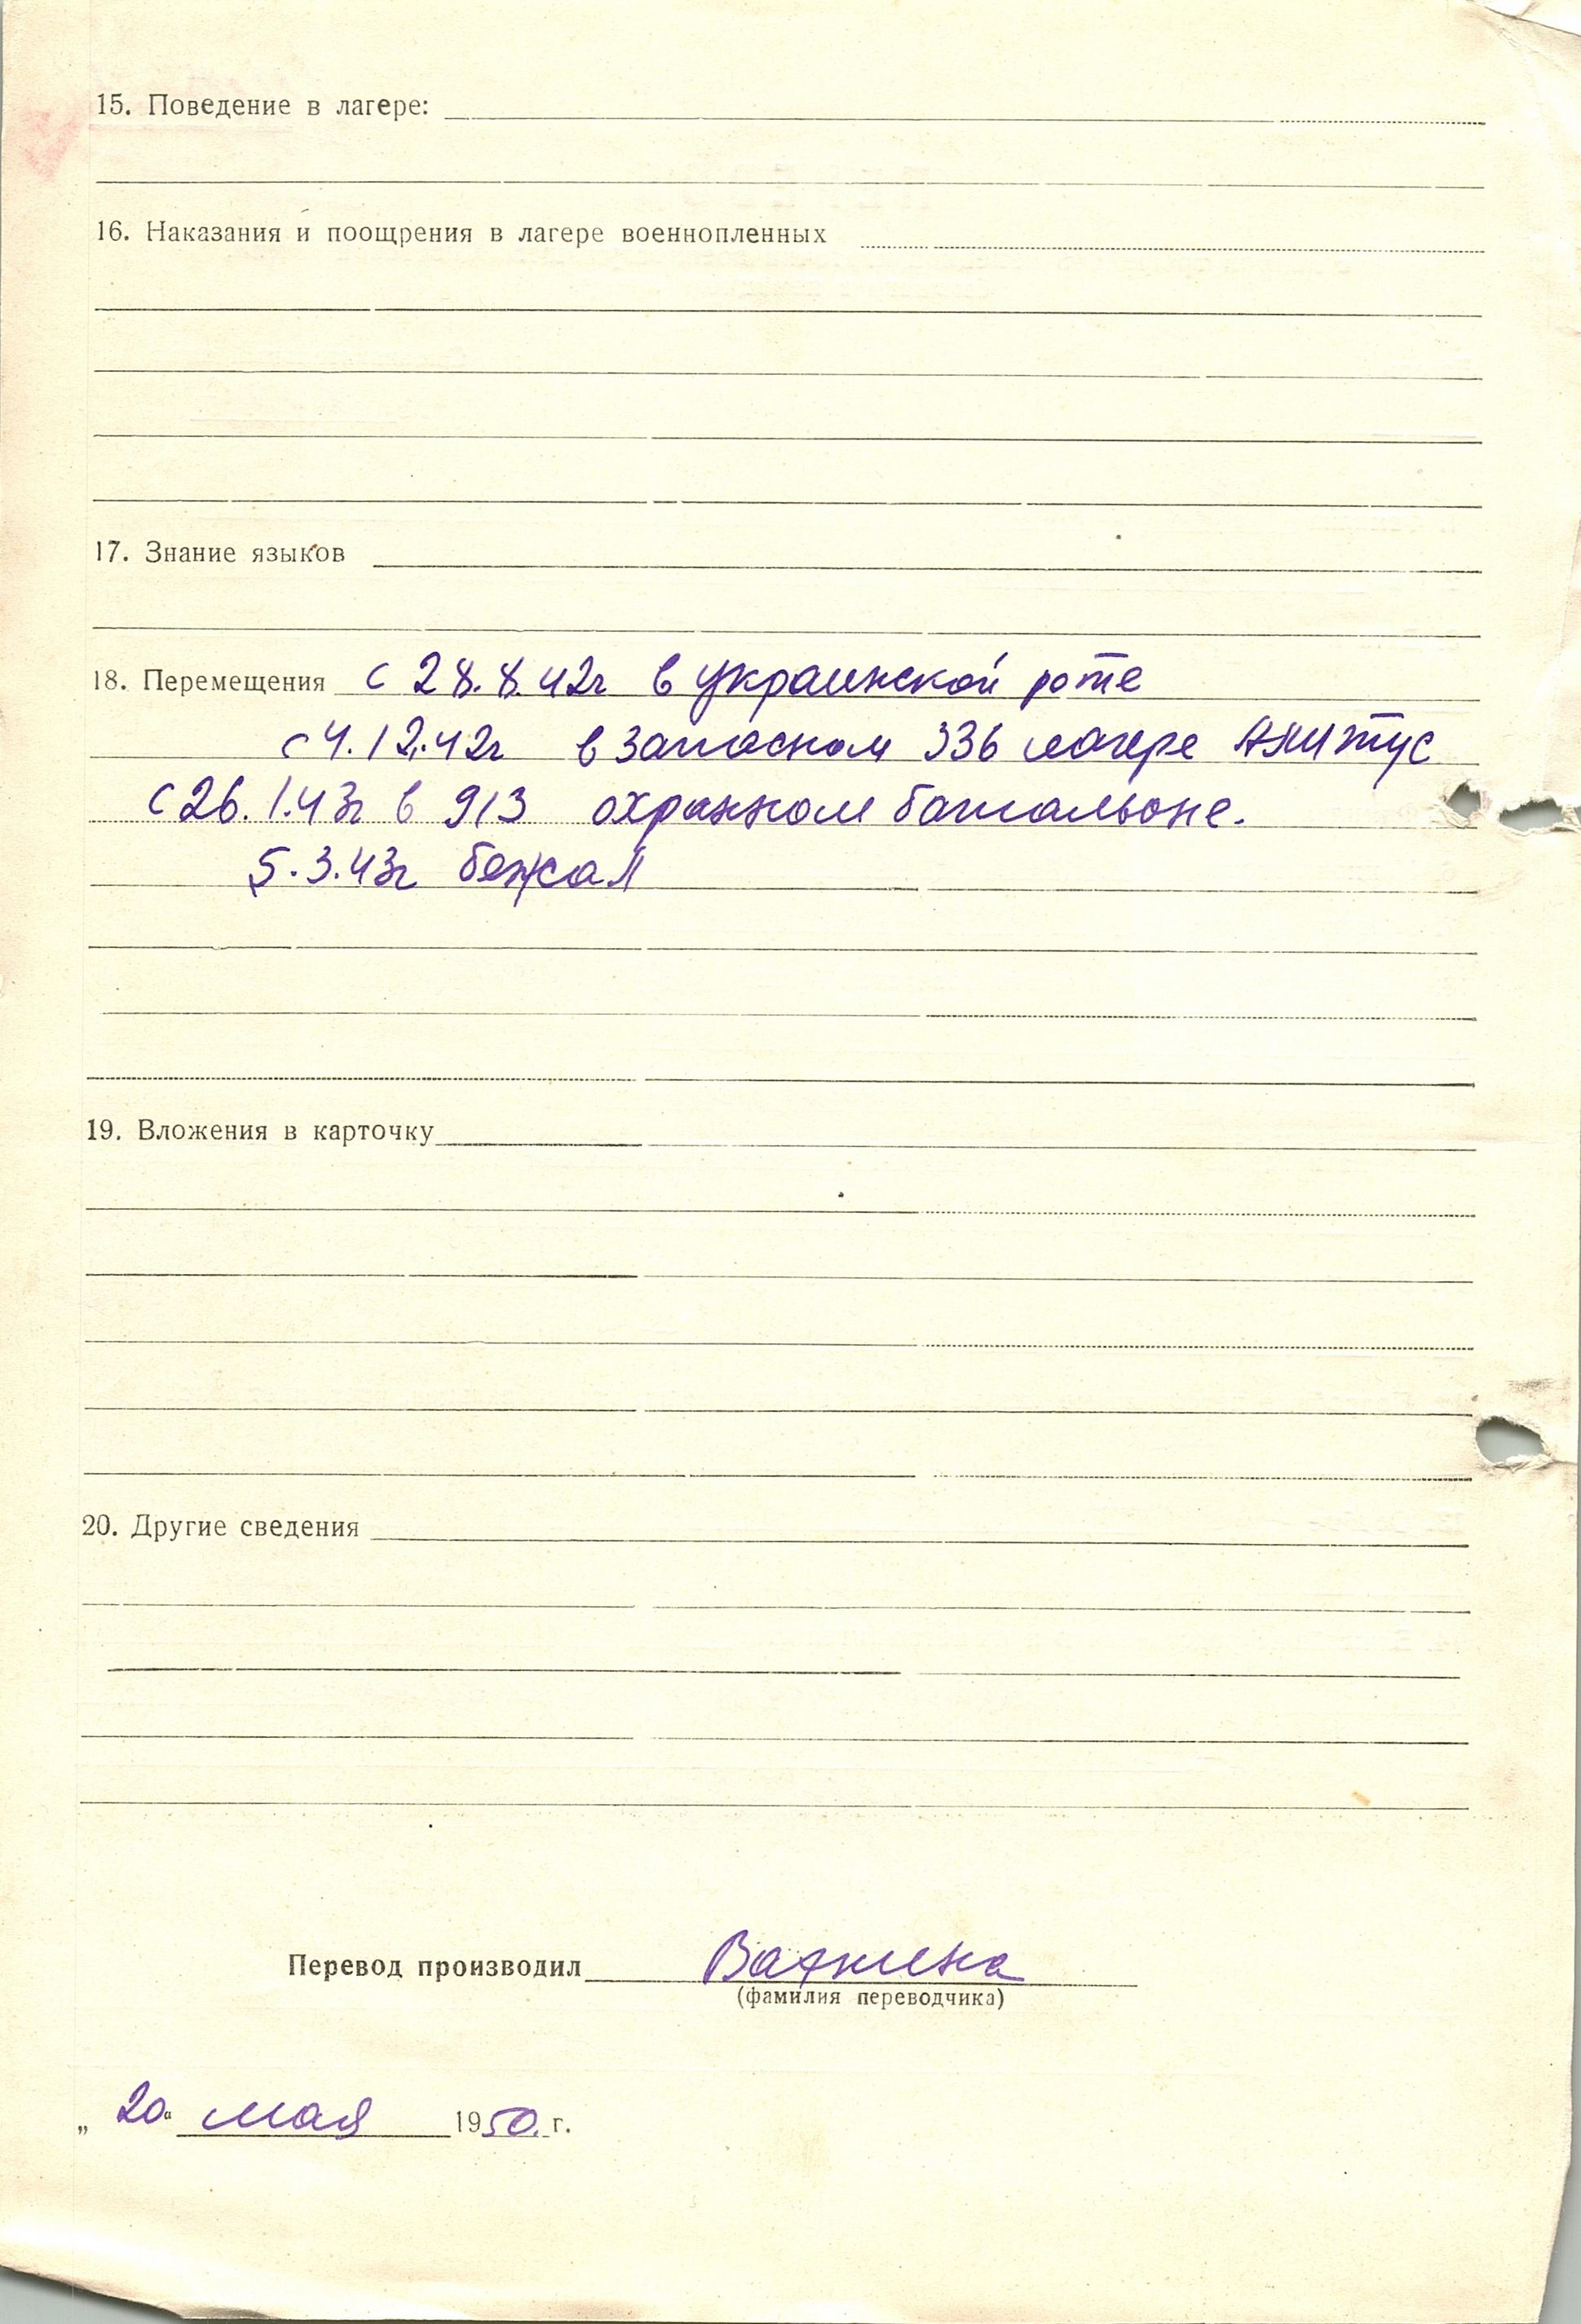 15. Поведение в лагере:
16. Наказания и поощрения в лагере военнопленных
17. Знание языков
18. Перемещения с 28.8.42г в украинской роте
с 4.12.42г в запасном 336 лагере
с 26.1.43г в 913 охранном батальоне.
5.3.43г бежал
19. Вложения в карточку
20. Другие сведения
Перевод производил
(фамилия переводчика)
„ 20 “ мая 1950. г.